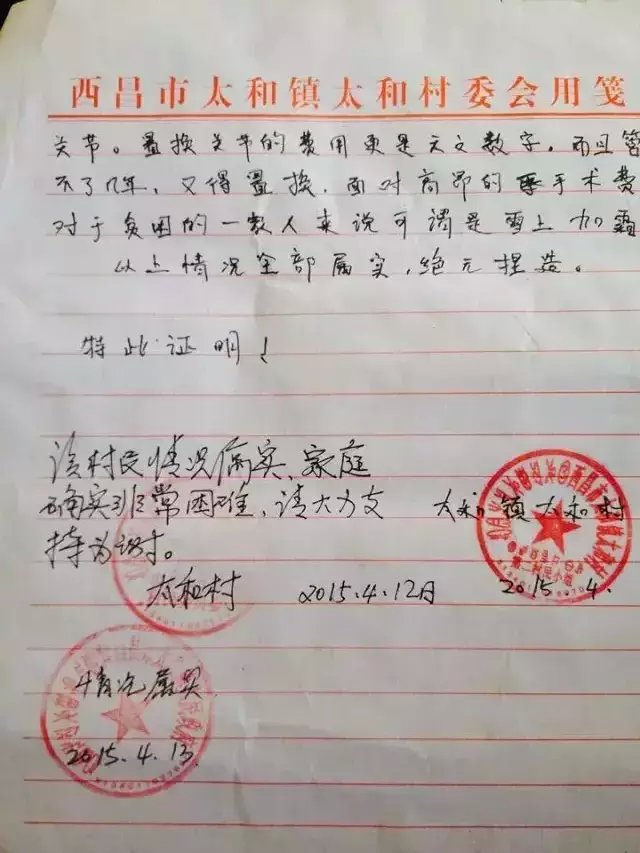 西昌市太和镇太和村委会用笺
关节。置换关节的费用更是天文数字。而且管
不了几年，又得置换，面对高昂的手术费
对于贫困的一家人来说可谓是雪上加霜
以上情况全部属实，绝无捏造。
特此证明！
该村民情况属实、家庭
确实非常困难，请大力支
持为谢。
太和村 2015.4.12日
太和镇太和村
2015.4.
情况属实
2015.4.13